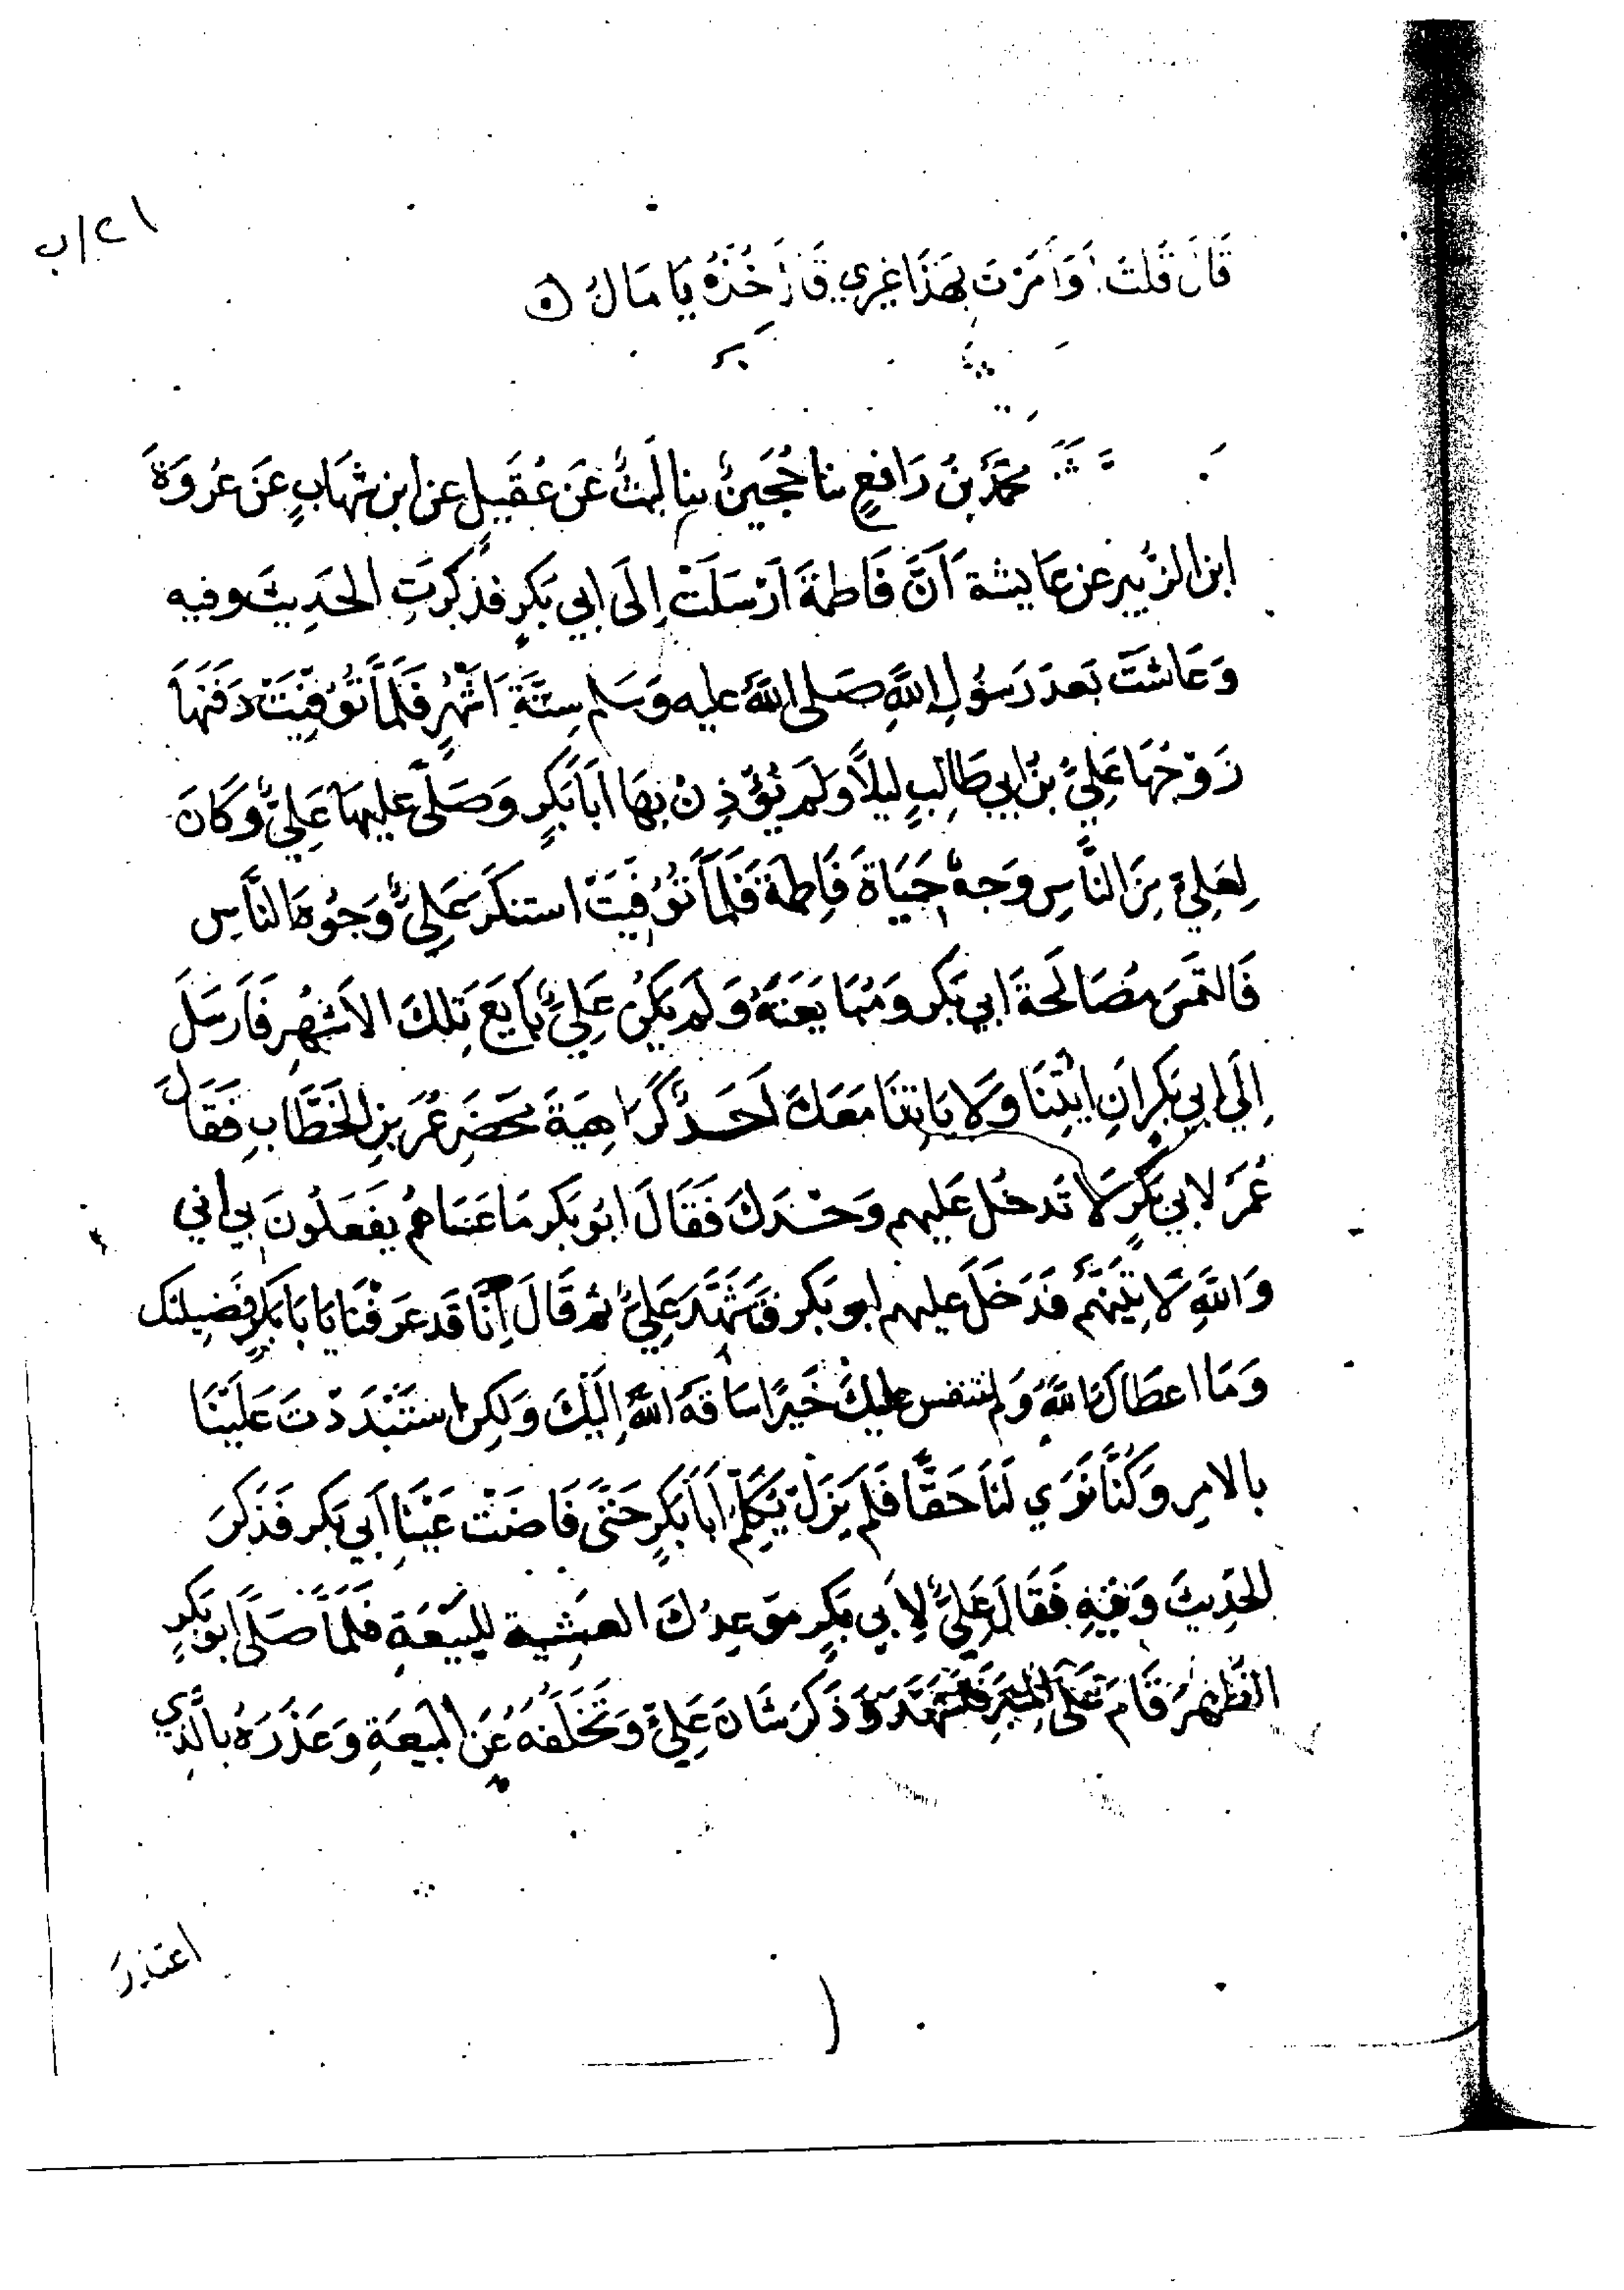 ٢١/ب
قَالَ قُلْتُ أوَأمَرْتَ بِهَذَا غيري قَالَ خُذْهُ يَا مَالُ
محمَّدُ بنُ رَافعٍ نا حُجَينٌ نا ليثٌ عَن عُقَيلٍ عن ابن شِهَابٍ عَن عُروَةَ
ابن الزُّبير عن عايشة أنَّ فَاطمةَ أرْسَلَتْ إِلَى ابي بَكرٍ فذكرَتِ الحَدِيثَ وفيه
وَعَاشَتْ بَعدَ رَسُولِ اللَّهِ صَلى اللَّهُ عليه وَسَلم سِتَّةَ اَشْهُرٍ فَلَمَّا تُوُفِّيَتْ دَفَنَهَا
زَوْجُهَا عَلِيُّ بنُ ابي طَالِبٍ ليلاً وَلَم يُؤْذِنْ بهَا ابَا بَكرٍ وَصَلَّى عليهَا عَلِيٌّ وَكَانَ
لِعَلِيٍّ مِنَ النَّاسِ وجَهٌ حَيَاةَ فَاطِمَةَ فَلَمَّا تُوُفيَتْ استنكَرَ عَلِيٌّ وُجُوهَ النَّاسِ
فَالتمَسَ مُصَالَحةَ ابي بَكر وَمُبَايَعَتَهُ وَلَم يَكُن عَلِيٌّ بَايَعَ تِلكَ الاَشهُر فَاَرسَلَ
اِلَى ابي بَكرٍ اَنِ ايْتِنَا وَلا يَاتِنَا مَعَكَ اَحَدٌ كَرَاهِيَةَ مَحضَرِ عُمَرَ بنِ الخَطَّابِ فَقَالَ
عُمَرُ لابي بَكرٍ لاَ تَدخُل عَلَيهم وَحْدَكَ فَقَالَ ابُو بَكر مَا عَسَاهُم يَفعَلُونَ بي اني
وَاللهِ لآتِيَنَّهُم فَدَخَلَ عليهم ابو بَكر فَتَشَهَّدَ عَلِيٌّ ثُمَ قَالَ اِنَّا قَد عَرَفْنَا يا بَا بَكرٍ فَضِيلتك
وَمَا اعطَاكَ اللَّهُ وَلم نَنفس عليكَ خَيرًا سَاقَهُ اللَّهُ اِلَيْكَ وَلكِن استَبْدَدْتَ عَلَيْنَا
بالامرِ وَكُنَّا نَرَي لَنَا حَقًّا فَلم يَزَلْ يُكَلِّمُ اَبَا بَكرٍ حَتَّى فَاضَتْ عَيْنَا اَبي بَكر فَذَكَرَ
الحَدِيثَ وَفيْهِ فَقَالَ عَلِيٌّ لاِبي بَكرٍ مَوعِدُكَ العَشِية لِلبَيْعَةِ فَلَمَّا صَلَّى ابو بَكرٍ
الظُهرَ قَامَ عَلَى المنبَرِ فتَشَهَّدَ وَذَكَرَ شَانَ عَلِيٍّ وَتَخَلُّفَهُ عَن البَيعَةِ وَعَذَرَهُ بالَّذي
اعتذرَ